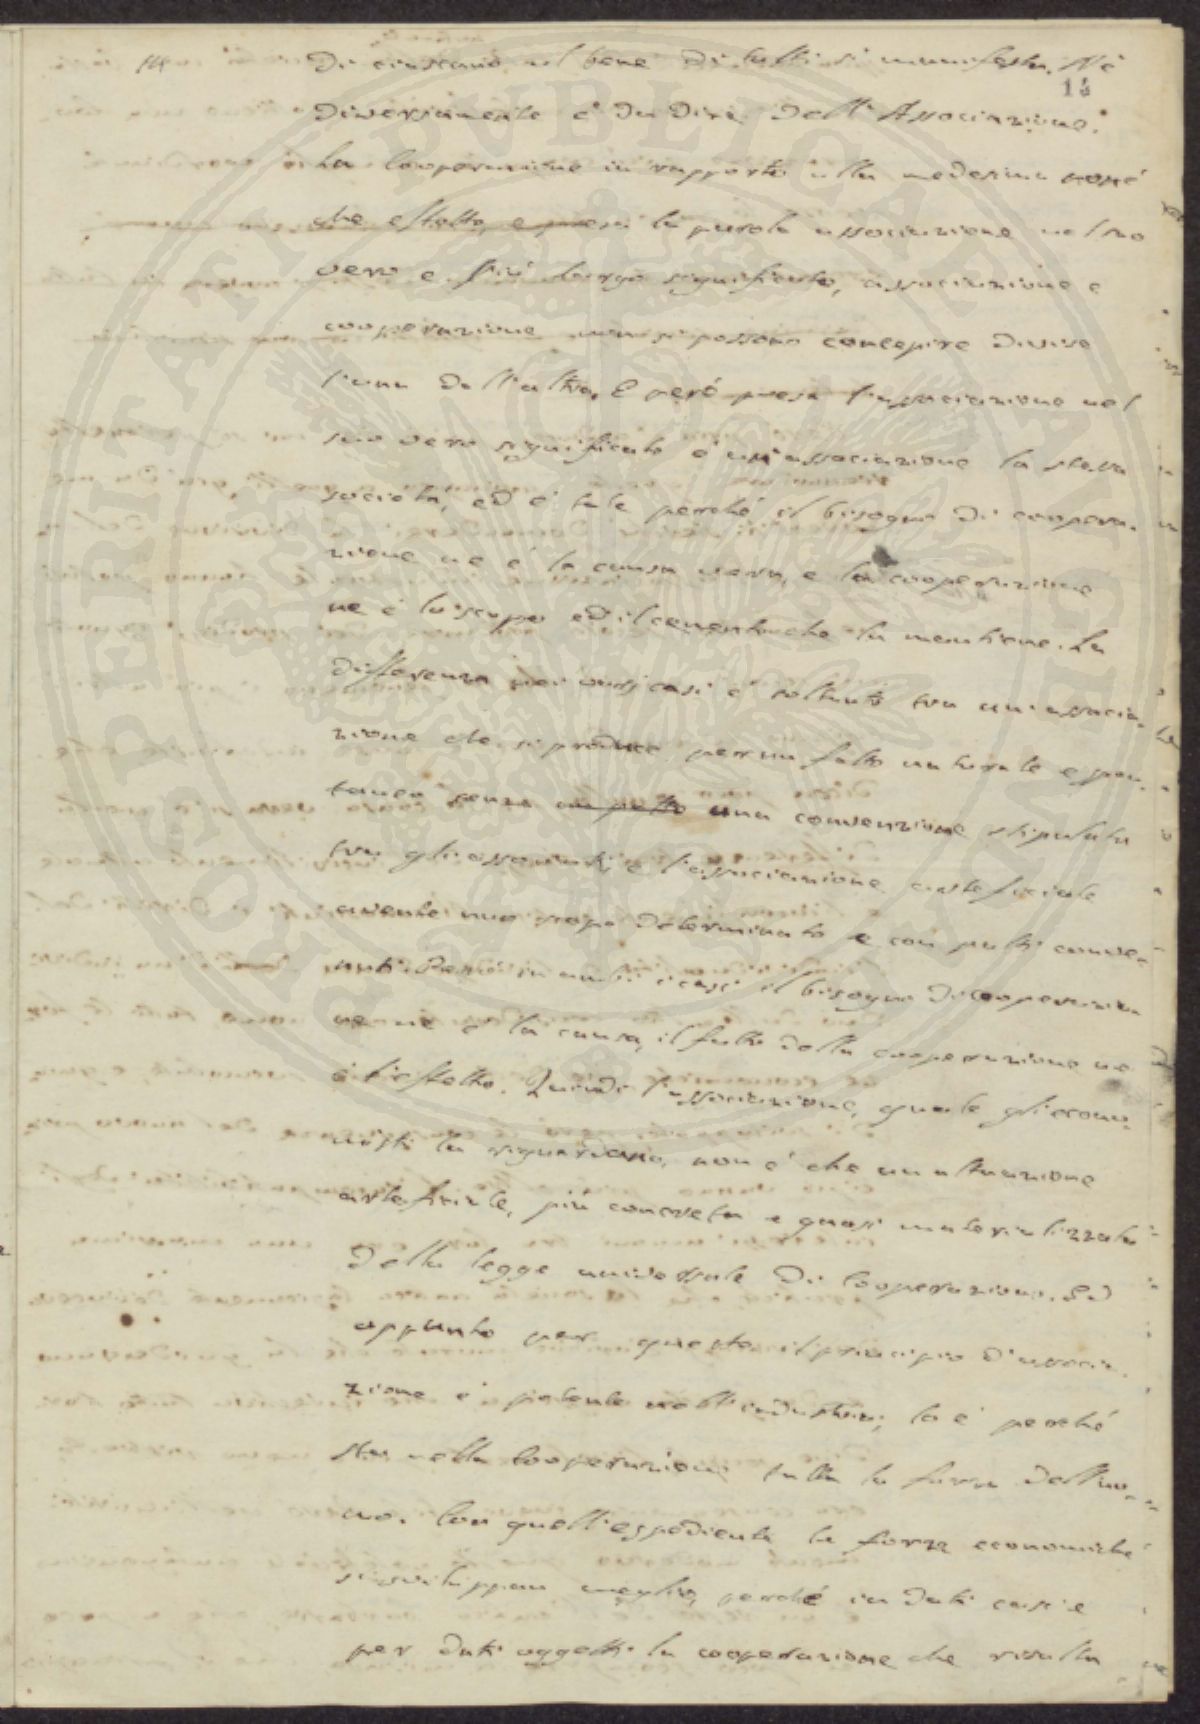 di ciascuno nel bene di tutti si manifesta. Nè
14
diversamente è da dire dell'Associazione.
La Cooperazione in rapporto alla medesima non è
che effetto, e presa la parola associazione nel suo
vero e più largo significato, associazione e
cooperazione non si possono concepire divise
l'una dall'altra. E però presa l'associazione nel
suo vero significato è un'associazione la stessa
società, ed è tale perché il bisogno di coopera-
zione ne è la causa vera, e la cooperazione
ne è lo scopo ed il cemento che la mantiene. La
differenza nei varj casi è soltanto tra un'associa-
zione che si produce per un fatto naturale e spon-
taneo senza un patto una convenzione stipulata
tra gli associati, e l'associazione artificiale
avente uno scopo determinato e con patti conve-
nuti. Però in ambi i casi il bisogno di cooperazio-
ne ne è la causa, il fatto della cooperazione ne
è l'effetto. Quindi l'associazione, quale gli econo-
misti la riguardano, non è che un attuazione
artificiale, più concreta e quasi materializzata
della legge universale di Cooperazione. Ed
appunto per questo il principio d'associa-
zione è potente nell'industria; lo è perché
sta nella Cooperazione tutta la forza dell'uo-
mo. Con quell'espediente le forze economiche
si sviluppan meglio, perché in dati casi e
per dati oggetti la cooperazione che risulta